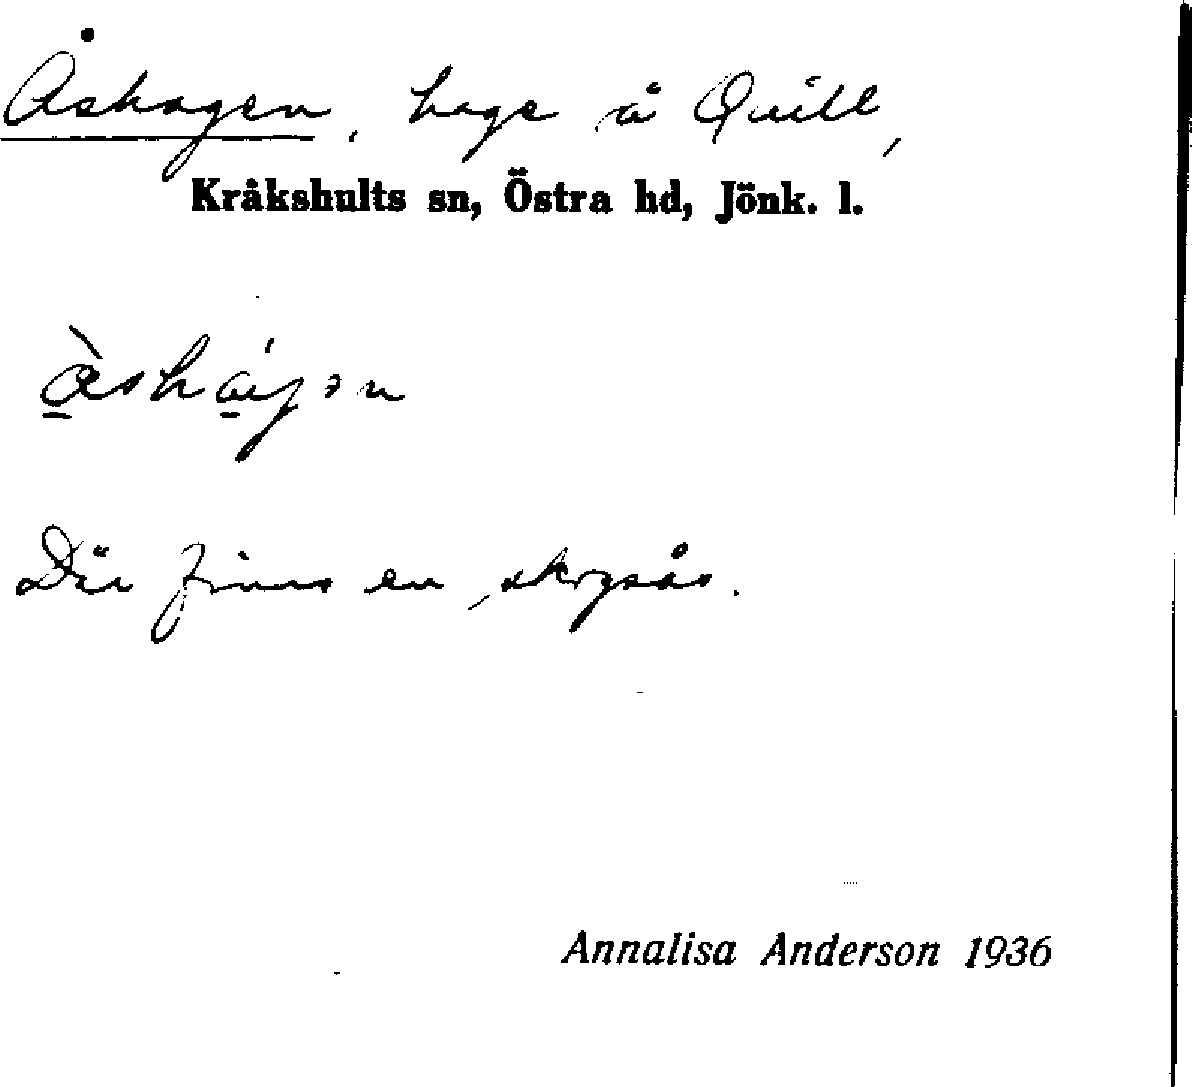 Åshagen, hage å Quill,
Kråkshults sn, Östra hd, Jönk. l.
Där finns en skogsås.
Annalisa Anderson 1936